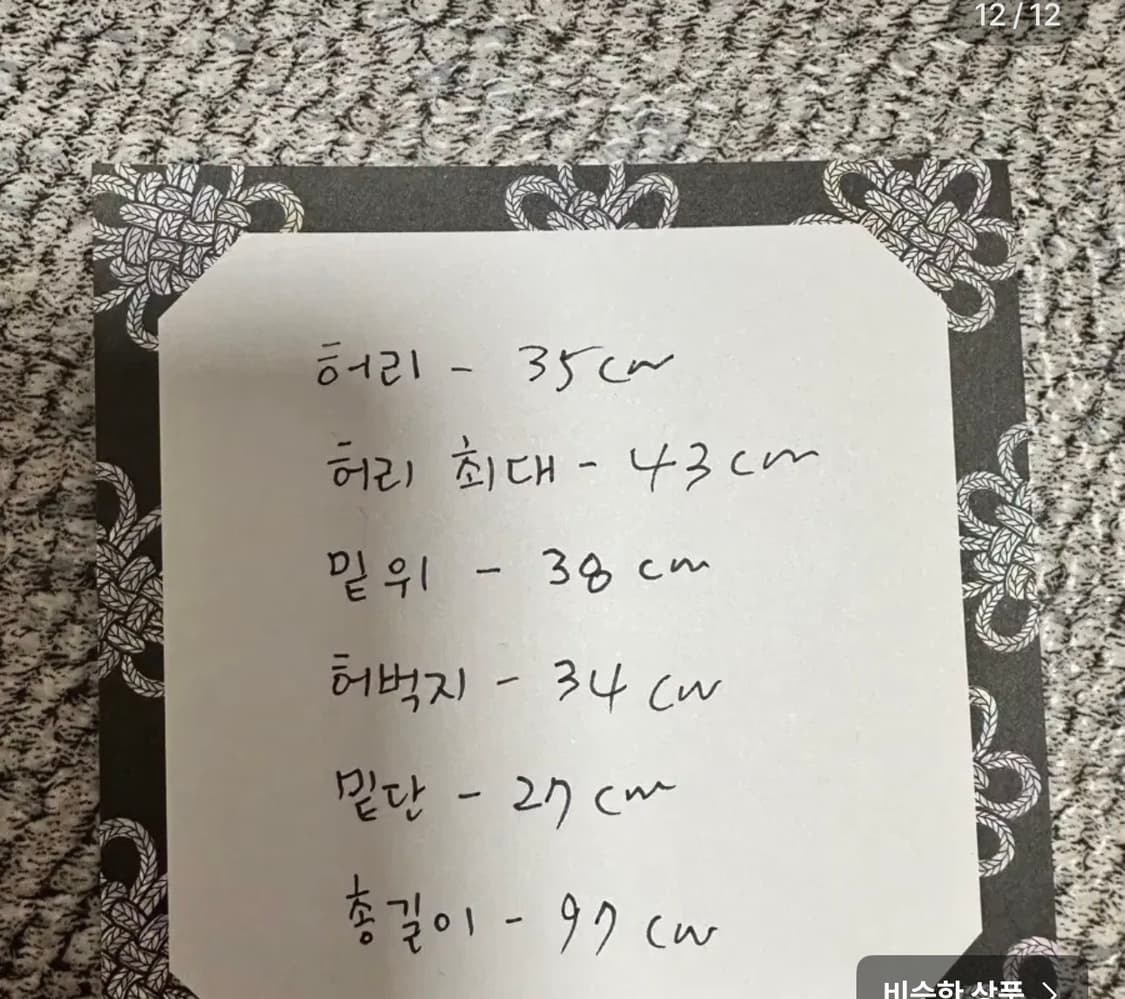 12 / 12
허리 - 35cm
허리 최대 - 43cm
밑위 - 38cm
허벅지 - 34cm
밑단 - 27cm
총길이 - 97cm
비슷한 상품 >